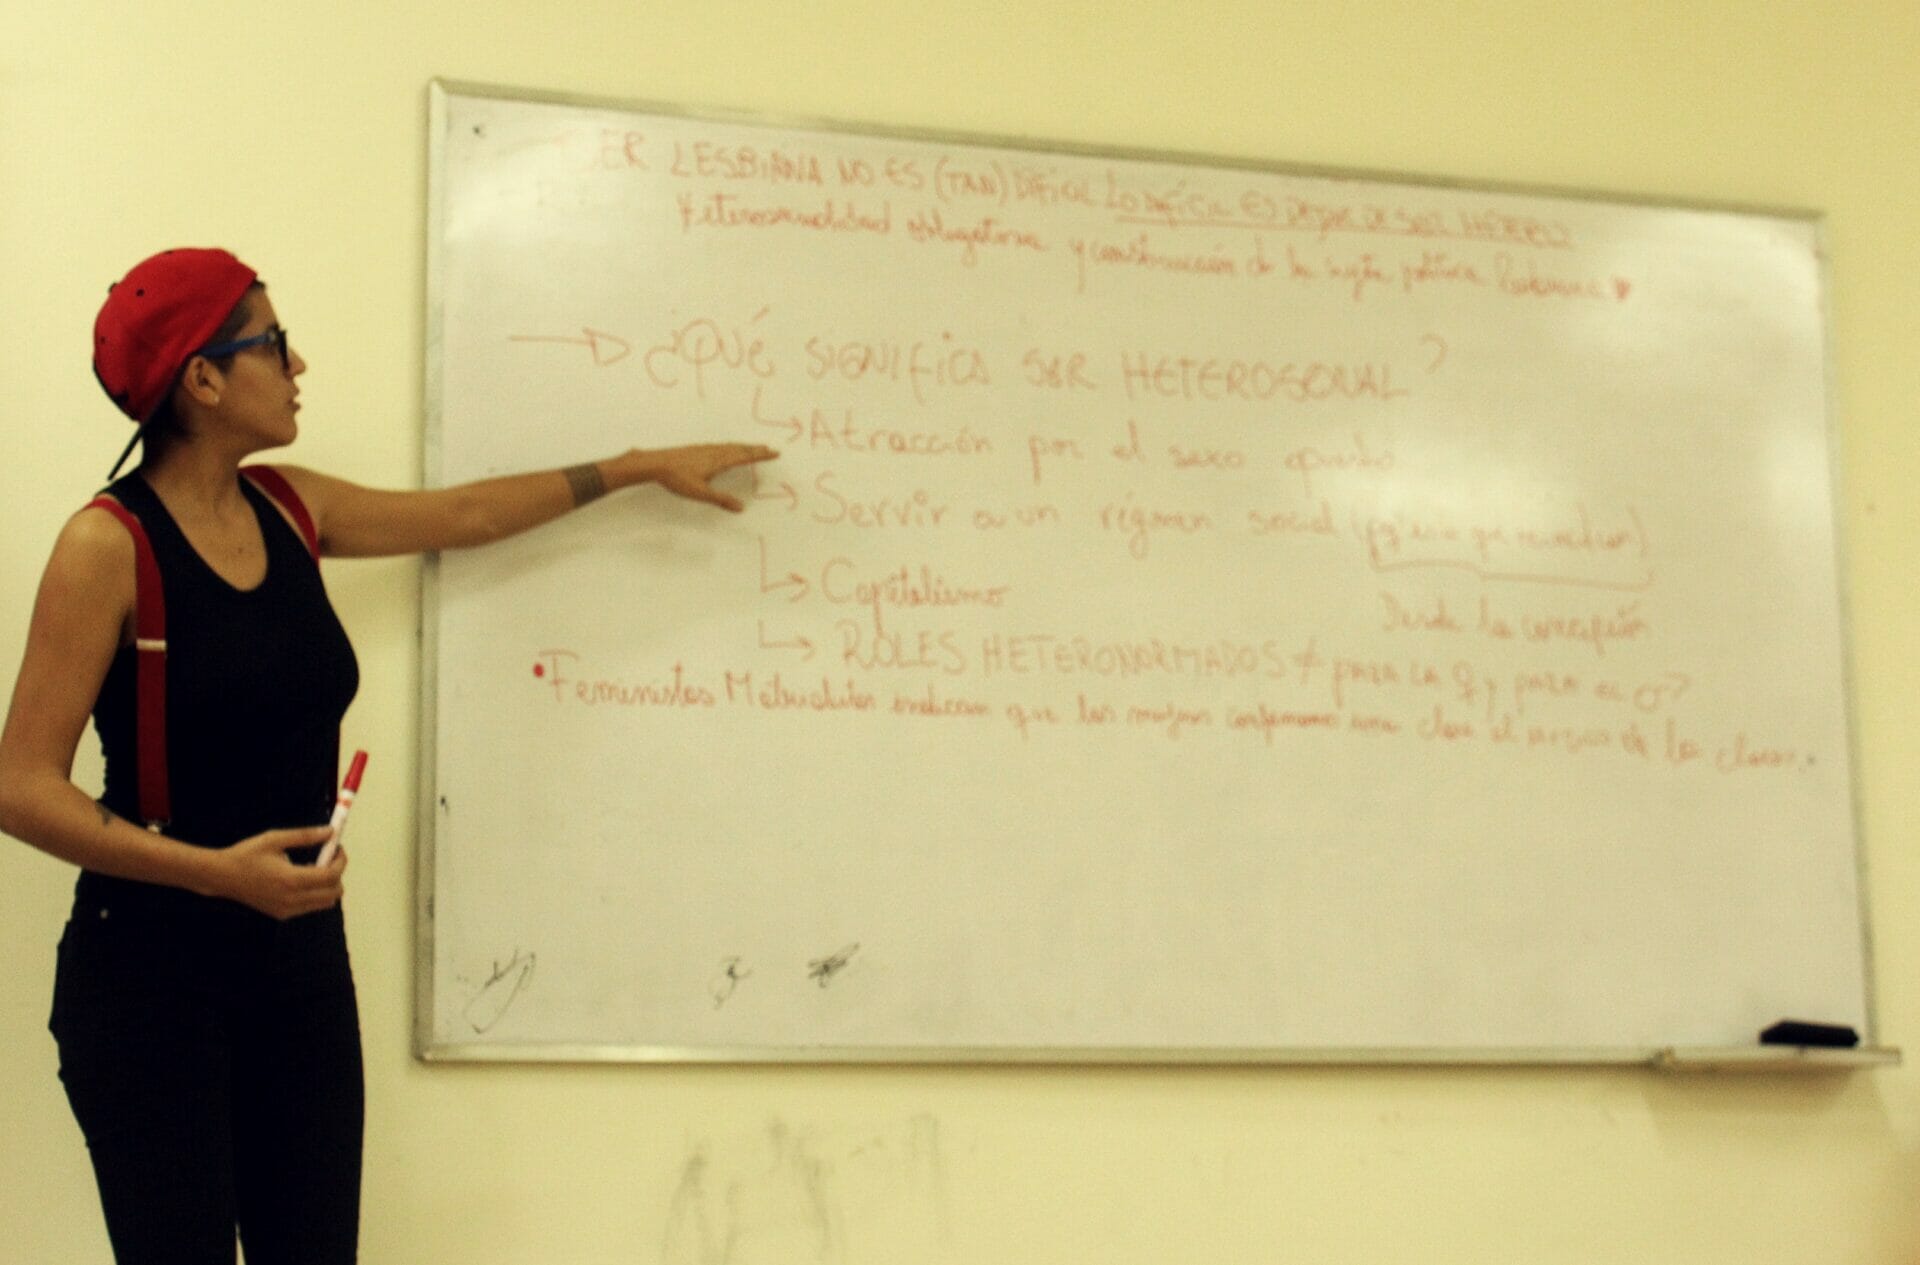 SER LESBIANA NO ES (TAN) DIFICIL LO DIFICIL ES DEJAR DE SER HETERO
Heterosexualidad obligatoria y construcción de la sujeta política lesbiana ♥
→ ¿QUÉ SIGNIFICA SER HETEROSEXUAL?
↳ Atracción por el sexo opuesto
↳ Servir a un régimen social (
↳ Capitalismo
Desde la concepción
↳ ROLES HETERONORMADOS ≠ para la ♀ y para el ♂?
• Feministas Materialistas indican que las mujeres conformamos una clase